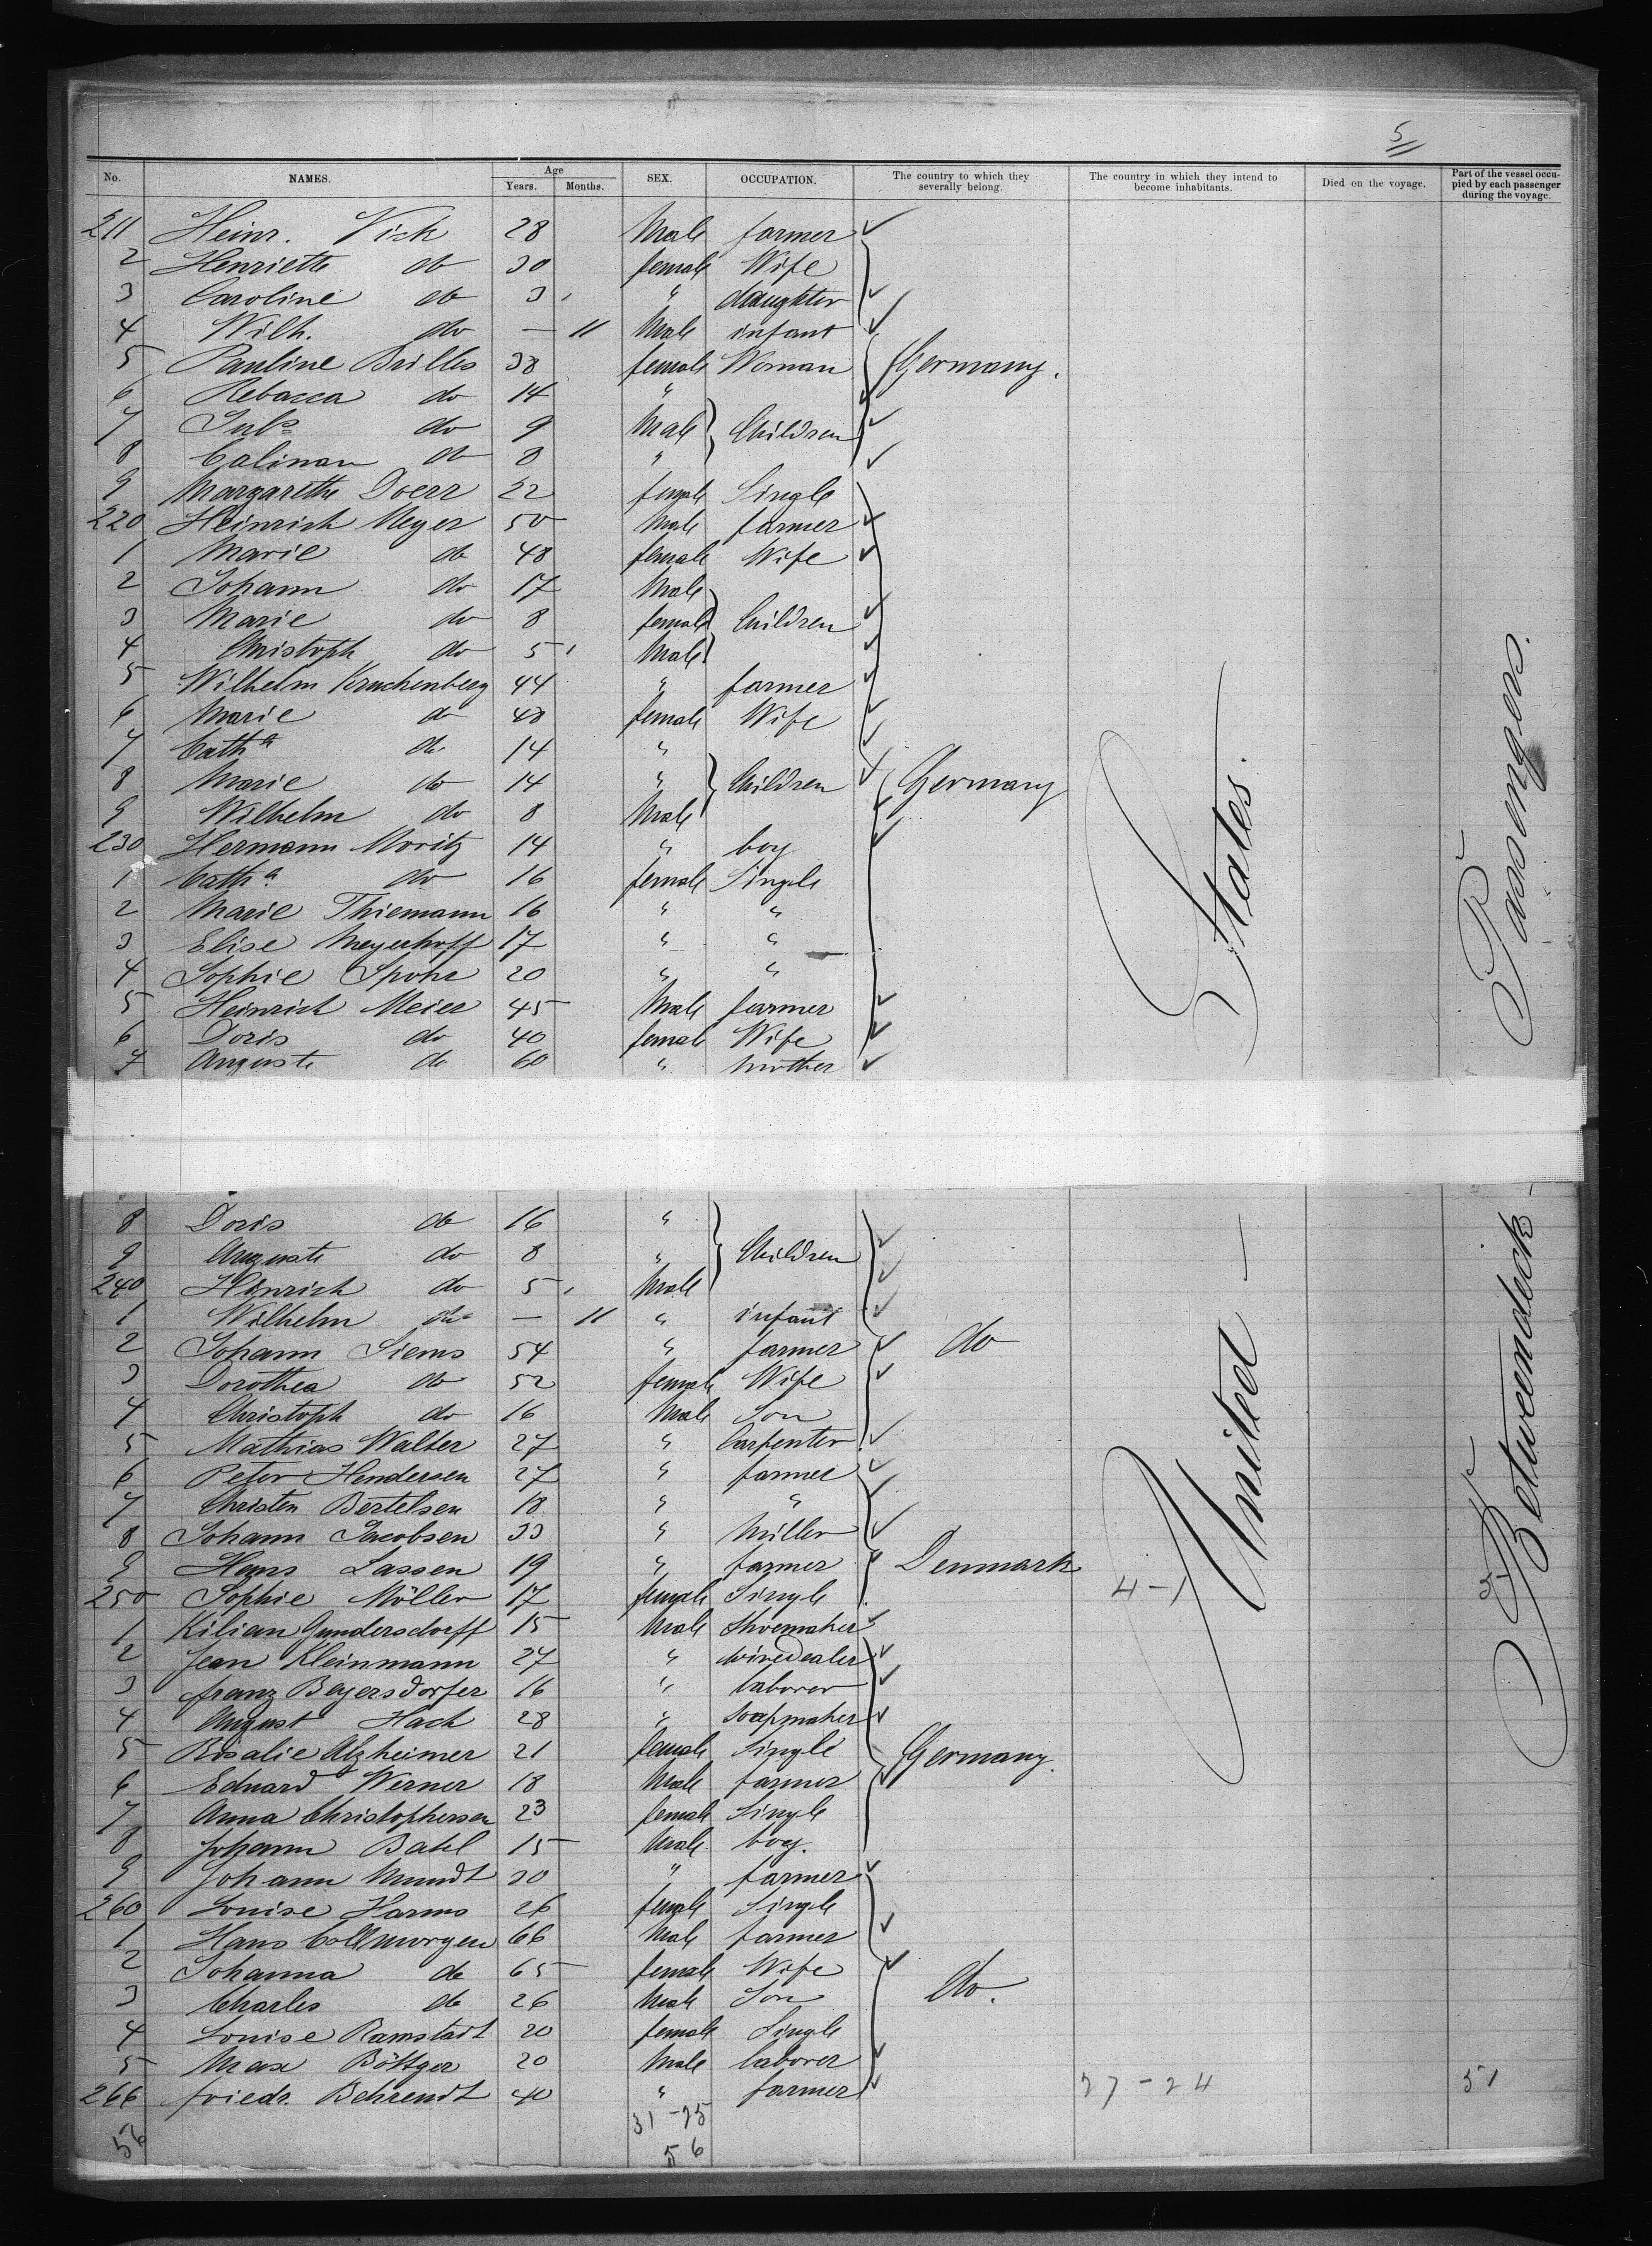 5
No. NAMES. Age Years. Months. SEX. OCCUPATION. The country to which they severally belong. The country in which they intend to become inhabitants. Died on the voyage. Part of the vessel occupied by each passenger during the voyage.
211 Heinr. Vick 28 Male farmer
2 Henriette do 30 female Wife
3 Caroline do 3 " daughter
4 Wilh. do — 11 Male infant
5 Pauline Brilles 38 female Woman Germany.
6 Rebacca do 14 "
7 Juls do 9 Male Children
8 Calinan do 8 "
9 Margarethe Doerr 22 female Single
220 Heinrich Meyer 50 Male farmer
1 Marie do 48 female Wife
2 Johann do 17 Male
3 Marie do 8 female Children
4 Christoph do 5 Male
5 Wilhelm Kruckenberg 44 " farmer
6 Marie do 48 female Wife
7 Cath a do 14 "
8 Marie do 14 " Children Germany
9 Wilhelm do 8 Male
230 Hermann Moritz 14 " boy
1 Cath a do 16 female Single
2 Marie Thiemann 16 " "
3 Elise Meyerhoff 17 " "
4 Sophie Spohr 20 " "
5 Heinrich Meier 45 Male farmer
6 Doris do 40 female Wife
7 Auguste do 60 " mother
8 Doris do 16 "
9 Auguste do 8 " Children
240 Heinrich do 5 Male
1 Wilhelm do — 11 " infant
2 Johann Siems 54 " farmer do
3 Dorothea do 52 female Wife
4 Christoph do 16 Male Son
5 Mathias Walter 27 " Carpenter
6 Peter Hendersen 27 " farmer
7 Christen Bertelsen 18 " "
8 Johann Jacobsen 33 " Miller
9 Hans Lassen 19 " farmer Denmark
250 Sophie Möller 17 female Single 4-1
1 Kilian Gundersdorff 15 Male Shoemaker
2 Jean Kleinmann 27 " winedealer
3 Franz Beyersdorfer 16 " laborer
4 August Hach 28 " soapmaker
5 Rosalie Alzheimer 21 female Single Germany.
6 Eduard Werner 18 Male farmer
7 Anna Christophersen 23 female Single
8 Johann Batel 15 Male boy.
9 Johann Mundt 30 " farmer
260 Louise Harms 26 female Single
1 Hans Collmorgen 66 Male farmer
2 Johanna do 65 female Wife
3 Charles do 26 Male Son do.
4 Louise Ramstadt 20 female Single
5 Max Böttger 20 Male laborer
266 Friedr. Behrendt 40 " farmer 27-24 51
56 31-25
56
United States.
Betweendeck Passengers.